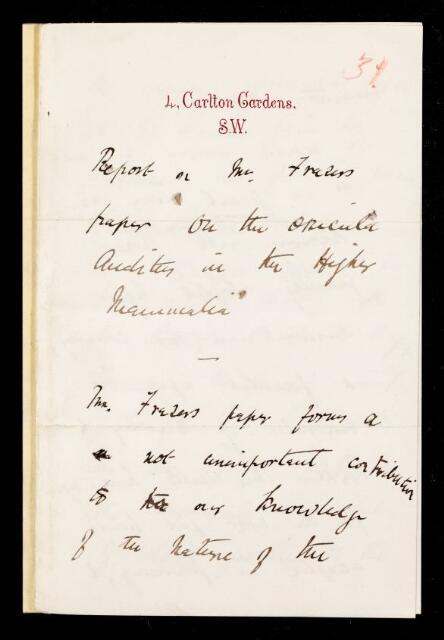 39
4, Carlton Gardens,
S.W.
Report on Mr. Frazers
paper on the Ossicula
Auditus in the Higher
Mammalia
—
Mr. Frazers paper forms a
not unimportant contribution
to our knowledge
of the nature of the